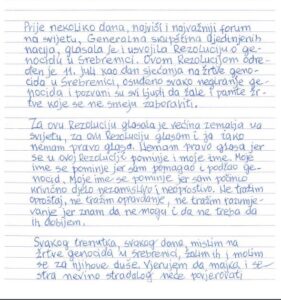 Prije nekoliko dana, najviši i najvažniji forum
na svijetu, Generalna skupština Ujedinjenih
nacija, glasala je i usvojila Rezoluciju o ge-
nocidu u Srebrenici. Ovom Rezolucijom odre-
đen je 11. juli kao dan sjećanja na žrtve geno-
cida u Srebrenici, osuđeno svako negiranje ge-
nocida i pozvani su svi ljudi da žale i pamte žr-
tve koje se ne smeju zaboraviti.
Za ovu Rezoluciju glasala je većina zemalja na
svijetu, za ovu Rezoluciju glasam i ja iako
nemam pravo glasa. Nemam pravo glasa jer
se u ovoj Rezoluciji pominje i moje ime. Moje
ime se pominje jer sam pomagao u podžao ge-
nocid. Moje ime se pominje jer sam počinio
krivično djelo nezamislivo i neoprostivo. Ne tražim
oproštaj, ne tražim opravdanje, ne tražim razumije-
vanje jer znam da ne mogu i da ne treba da
ih dobijem.
Svakog trenutka, svakog dana, mislim na
žrtve genocida u Srebrenici, žalim ih i molim
se za njihove duše. Vjerujem da majka i se-
stra nevino stradalog neće povjerovati